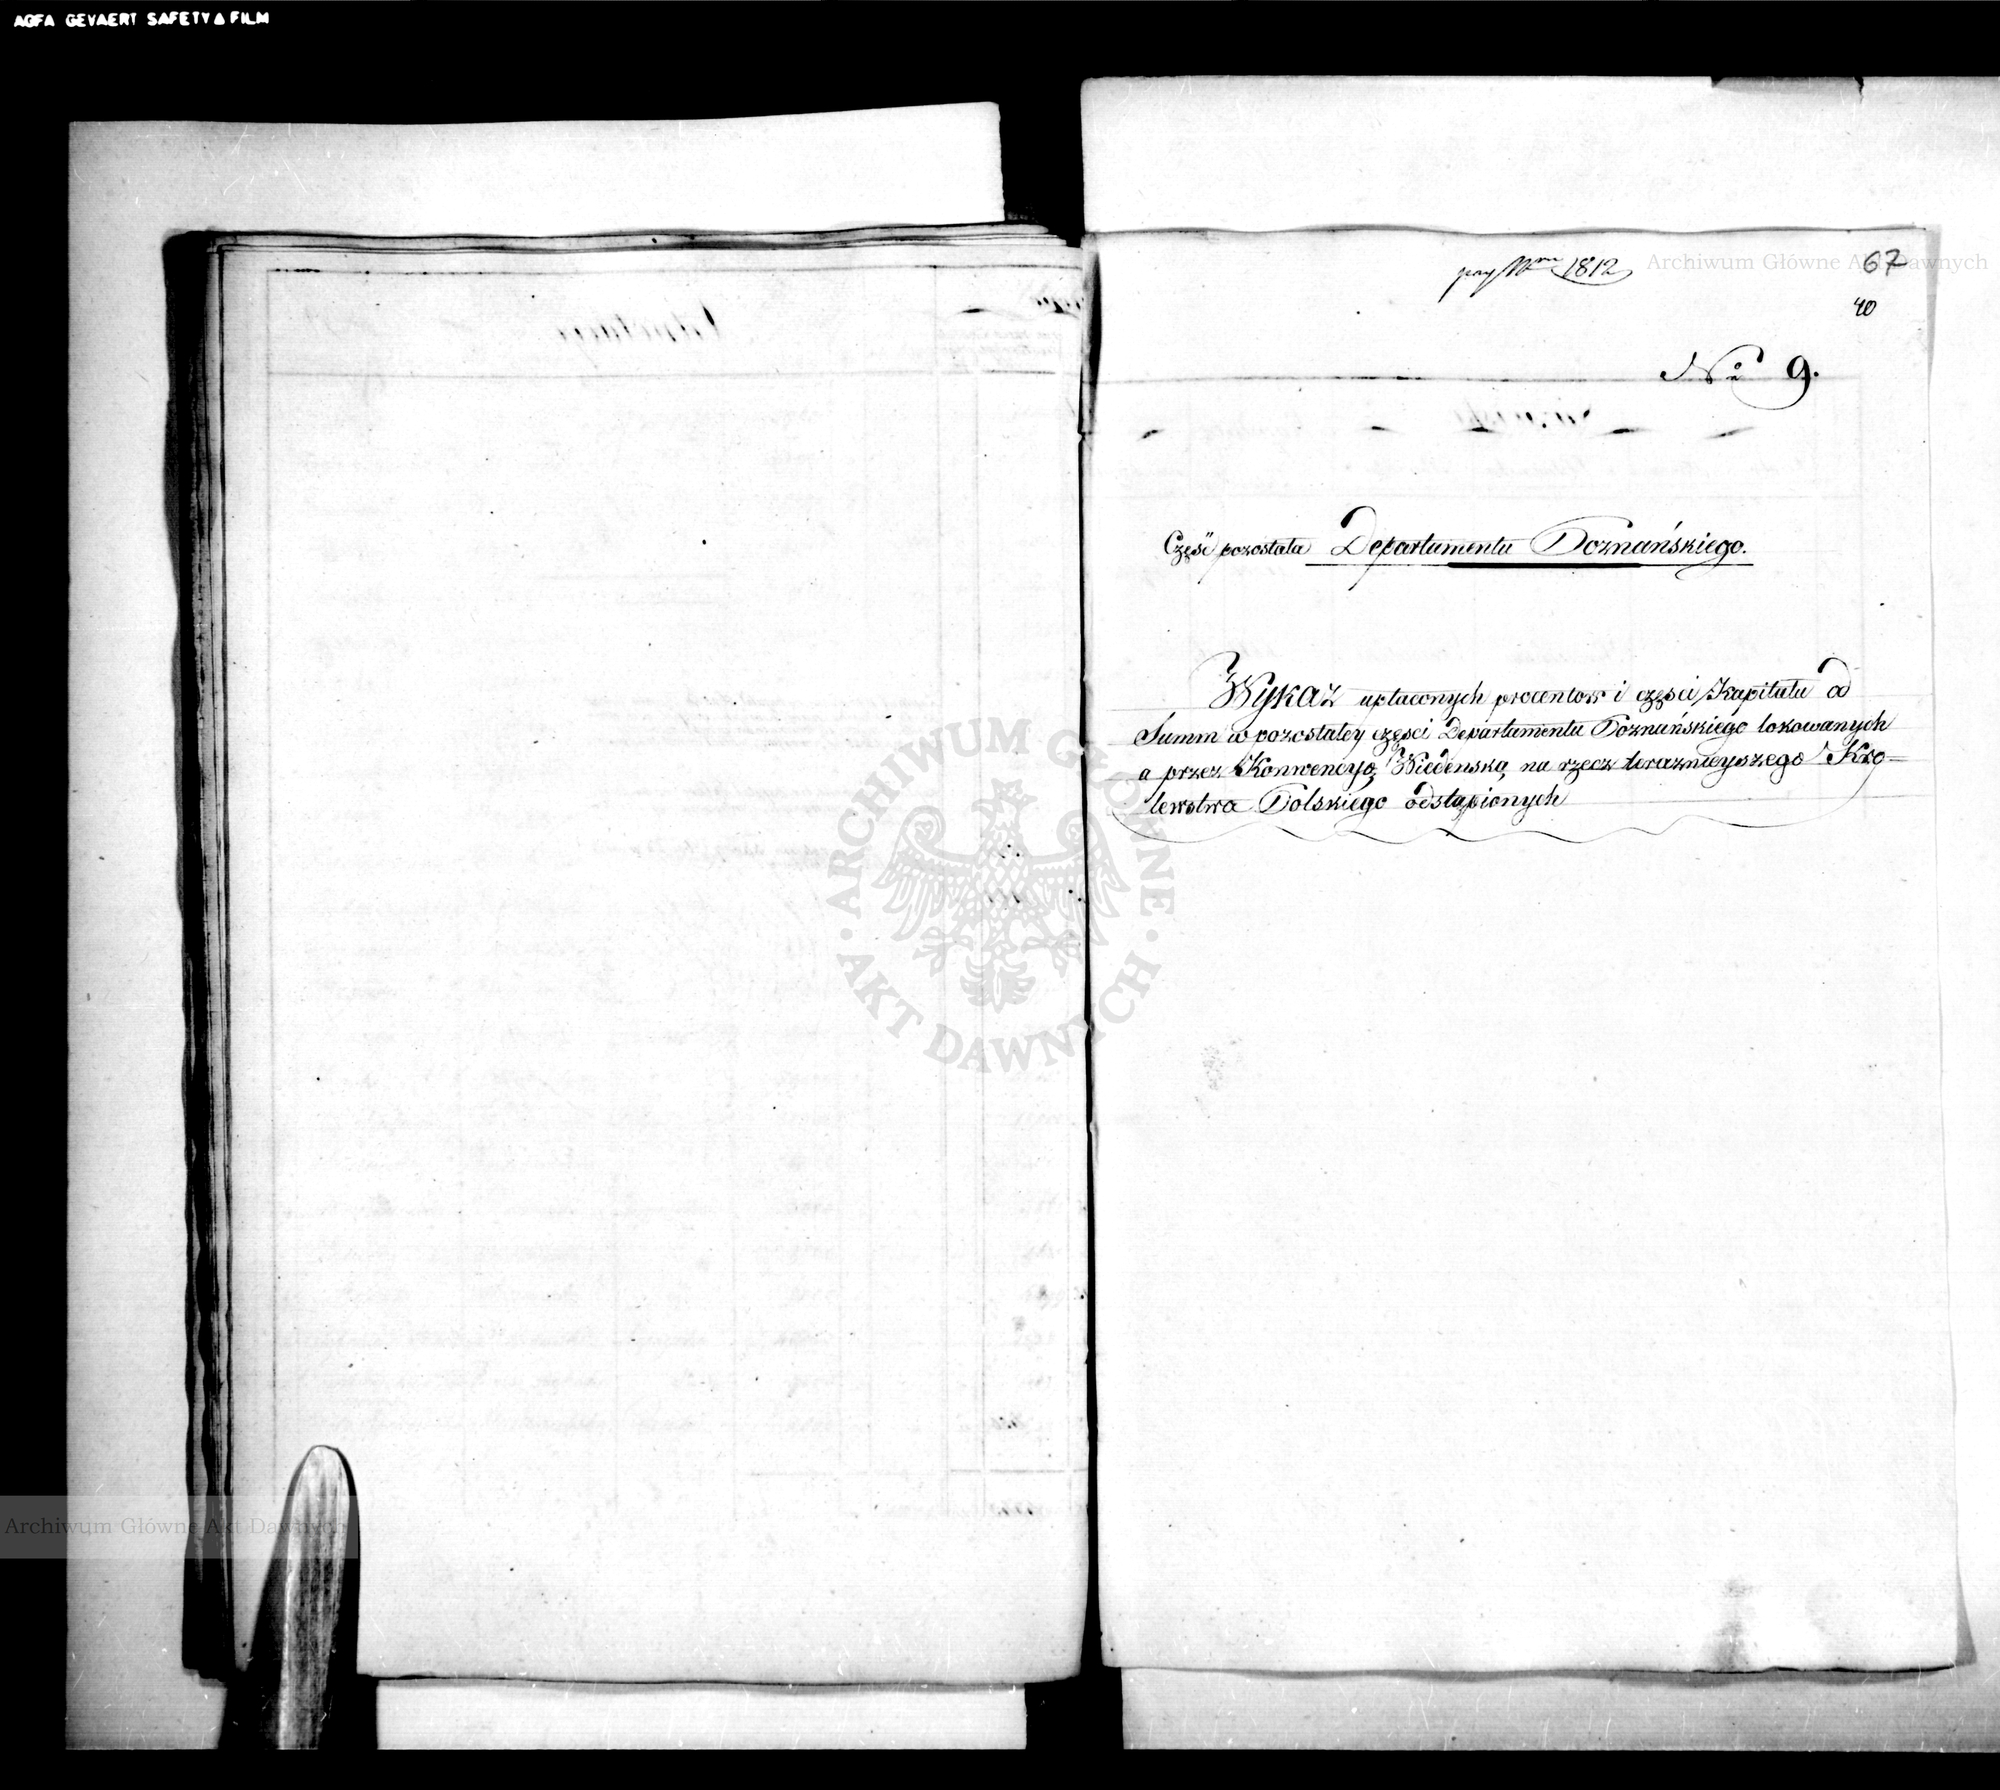 AGFA GEVAERT SAFETY FILM
Archiwum Główne Akt Dawnych
1812
67
40
No 9.
Część pozostała Departamentu Poznańskiego.
Wykaz upłaconych procentow i części Kapitału od
Summ w pozostałey części Departamentu Poznańskiego lokowanych
a przez Konwencyą Wiedenską na rzecz teraznieyszego Kro-
lewstwa Polskiego odstąpionych
ARCHIWUM GŁÓWNE AKT DAWNYCH
Archiwum Główne Akt Dawnych